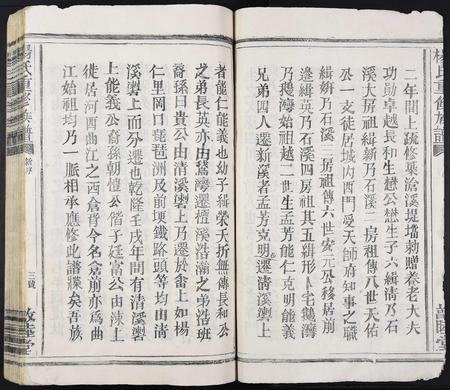 楊氏重修族譜
二年間上疏修築滄溪堤壋勅贈養老大夫
功勛卓越長和生懋公懋生子六緝清乃石
溪大房祖緝新乃石溪二房祖傳八世天佑
公一支徒居城内西門愛天師府知事之職
緝妍乃石溪一房祖傳六世安元公移居前
邊緝英乃石溪四房祖其五緝形卜宅鵝海
乃鵝海始祖越一世生孟芳能仁克明能義
兄弟四人遷新溪者孟芳克明遷清溪礐上
者能仁能義也幼子緝榮夭折無傳長和公
之弟長英亦由鵝灣遷檀溪浩滿之弟浩班
裔孫曰貴公由清溪礐上乃遷於畲上如楊
仁里岡口琵琶洲及前塂鐵路頭等均由清
溪礐上而分遷也乾隆壬戌年間有清溪礐
上能義公裔孫朝憕公偕子廷富公由涑上
徙居河西曲江之西倉背今名倉前亦爲曲
江始祖均乃一脈相承應修此譜牒矣吾族
楊氏重修族譜
新序
三號
敦睦堂